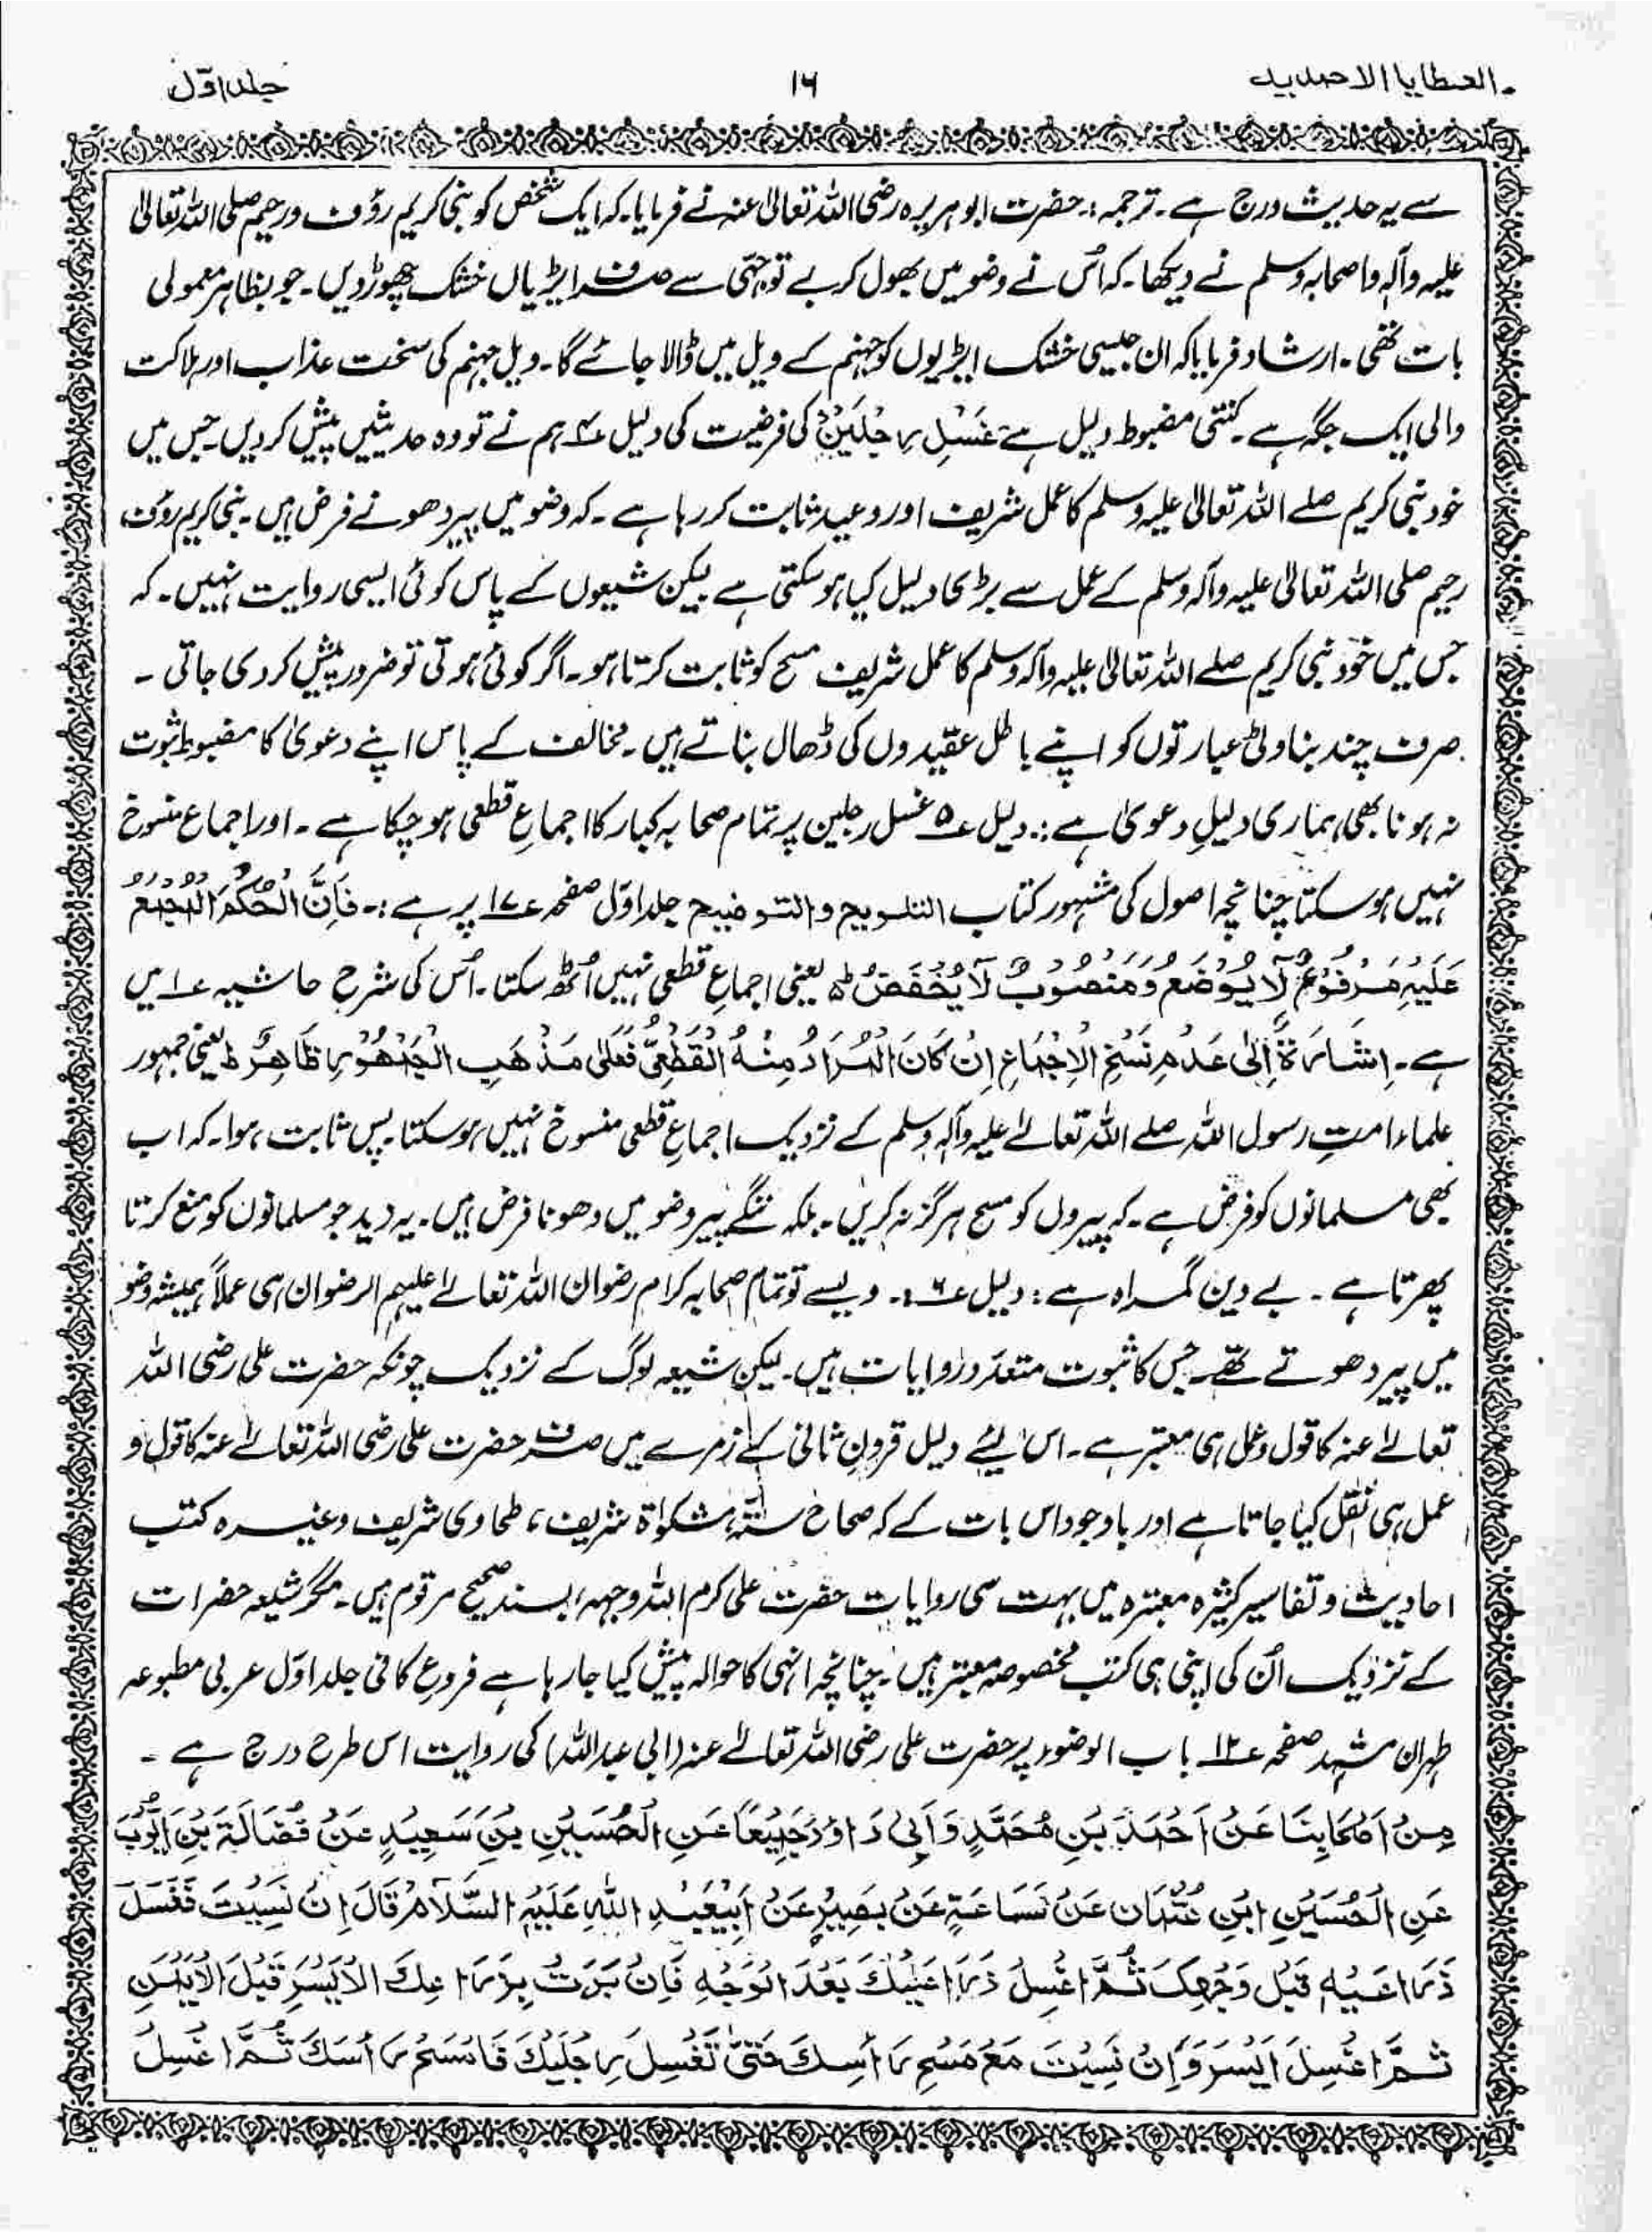 العطایا الاحمدیہ
۱۶
جلد اوّل
سے یہ حدیث درج ہے۔ ترجمہ:۔ حضرت ابو ہریرہ رضی اللہ تعالیٰ عنہ نے فرمایا۔ کہ ایک شخص کو نبی کریم رؤف ورحیم صلی اللہ تعالیٰ
علیہ وآلہٖ واصحابہ وسلم نے دیکھا۔ کہ اُس نے وضو میں بھول کر بے توجہی سے صرف ایڑیاں خشک چھوڑ دیں۔ جو بظاہر معمولی
بات تھی۔ ارشاد فرمایا کہ ان جیسی خشک ایڑیوں کو جہنم کے ویل میں ڈالا جائے گا۔ ویل جہنم کی سخت عذاب اور ہلاکت
والی ایک جگہ ہے۔ کتنی مضبوط دلیل ہے غَسْلِ رِجْلَیْن کی فرضیت کی دلیل ؏۴ ہم نے تو وہ حدیثیں پیش کر دیں۔ جس میں
خود نبی کریم صلے اللہ تعالیٰ علیہ وسلم کا عمل شریف اور وعید ثابت کر رہا ہے۔ کہ وضو میں پیر دھونے فرض ہیں۔ نبی کریم رؤف
رحیم صلی اللہ تعالیٰ علیہ وآلہ وسلم کے عمل سے بڑی دلیل کیا ہو سکتی ہے لیکن شیعوں کے پاس کوئی ایسی روایت نہیں۔ کہ
جس میں خود نبی کریم صلے اللہ تعالیٰ علیہ وآلہ وسلم کا عمل شریف مسح کو ثابت کرتا ہو۔ اگر کوئی ہوتی تو ضرور پیش کر دی جاتی۔
صرف چند بناوٹی عبارتوں کو اپنے باطل عقیدوں کی ڈھال بناتے ہیں۔ مخالف کے پاس اپنے دعویٰ کا مضبوط ثبوت
نہ ہونا بھی ہماری دلیلِ دعویٰ ہے:۔ دلیل ؏۵ غسل رجلین پر تمام صحابہ کبار کا اجماعِ قطعی ہو چکا ہے۔ اور اجماع منسوخ
نہیں ہو سکتا چنانچہ اصول کی مشہور کتاب التلویح والتوضیح جلد اوّل صفحہ ؏۱۷ پر ہے:۔ فَاِنَّ الْحُکْمَ الْمُجْمَعَ
عَلَیْہِ مَرْفُوْعٌ لَا یُوْضَعُ وَمَنْصُوْبٌ لَا یُخْفَضُ ط یعنی اجماعِ قطعی نہیں اُٹھ سکتا۔ اُس کی شرح حاشیہ ؏۱ میں
ہے۔ اِشَارَۃٌ اِلٰی عَدَمِ نَسْخِ الْاِجْمَاعِ اِنْ کَانَ الْمُرَادُ مِنْہُ الْقَطْعِیَّ فَعَلٰی مَذْھَبِ الْجَمْھُوْرِ ظَاھِرٌ ط یعنی جمہور
علماء امتِ رسول اللہ صلے اللہ تعالےٰ علیہ وآلہٖ وسلم کے نزدیک اجماعِ قطعی منسوخ نہیں ہو سکتا۔ پس ثابت ہوا۔ کہ اب
بھی مسلمانوں کو فرض ہے۔ کہ پیروں کو مسح ہرگز نہ کریں۔ بلکہ ننگے پیر وضو میں دھونا فرض ہیں۔ یہ دید جو مسلمانوں کو منع کرتا
پھرتا ہے۔ بے دین گمراہ ہے: دلیل ؏۶:۔ ویسے تو تمام صحابہ کرام رضوان اللہ تعالےٰ علیہم الرضوان ہی عملاً ہمیشہ وضو
میں پیر دھوتے تھے۔ جس کا ثبوت متعدد روایات ہیں۔ لیکن شیعہ لوگ کے نزدیک چونکہ حضرت علی رضی اللہ
تعالےٰ عنہ کا قول و عمل ہی معتبر ہے۔ اس لیئے دلیل قرونِ ثانی کے زمرے میں صرف حضرت علی رضی اللہ تعالےٰ عنہ کا قول و
عمل ہی نقل کیا جاتا ہے اور باوجود اس بات کے کہ صحاح ستہ، مشکوٰۃ شریف، طحاوی شریف وغیرہ کتب
احادیث و تفاسیر کثیرہ معتبرہ میں بہت سی روایات حضرت علی کرم اللہ وجہہ، بسند صحیح مرقوم ہیں۔ مگر شیعہ حضرات
کے نزدیک اُن کی اپنی ہی کتب مخصوصہ معتبر ہیں۔ چنانچہ انہی کا حوالہ پیش کیا جا رہا ہے فروع کافی جلد اوّل عربی مطبوعہ
طہران مشہد صفحہ ؏۱۲ باب الوضوء پر حضرت علی رضی اللہ تعالےٰ عنہ (ابی عبداللہ) کی روایت اس طرح درج ہے۔
مِنْ اَصْحَابِنَا عَنْ اَحْمَدَ بْنِ مُحَمَّدٍ وَاَبِیْ دَاوٗدَ جَمِیْعًا عَنِ الْحُسَیْنِ بْنِ سَعِیْدٍ عَنْ فُضَالَۃَ بْنِ اَیُّوْبَ
عَنِ الْحُسَیْنِ ابْنِ عُثْمَان عَنْ سَمَاعَۃٍ عَنْ بَصِیْرٍ عَنْ اَبِیْعَبْدِ اللہِ عَلَیْہِ السَّلَامُ قَالَ اِنْ نَسِیْتَ فَغَسَلَ
ذَرَاعَیْہِ قَبْلَ وَجْھِکَ ثُمَّ اغْسِلْ ذَرَاعَیْکَ بَعْدَ الْوَجْہِ فَاِنْ بَدَتْ بِزَرَاعِکَ الْاَیْسَرِ قَبْلَ الْاَیْمَنِ
ثُمَّ اغْسِلَ اَیْسَرَ وَاِنْ نَسِیْتَ مَعَ مَسْحِ رَاْسِکَ حَتّٰی تَغْسِلَ رِجْلَیْکَ فَامْسَحْ رَاْسَکَ ثُمَّ اغْسِلْ